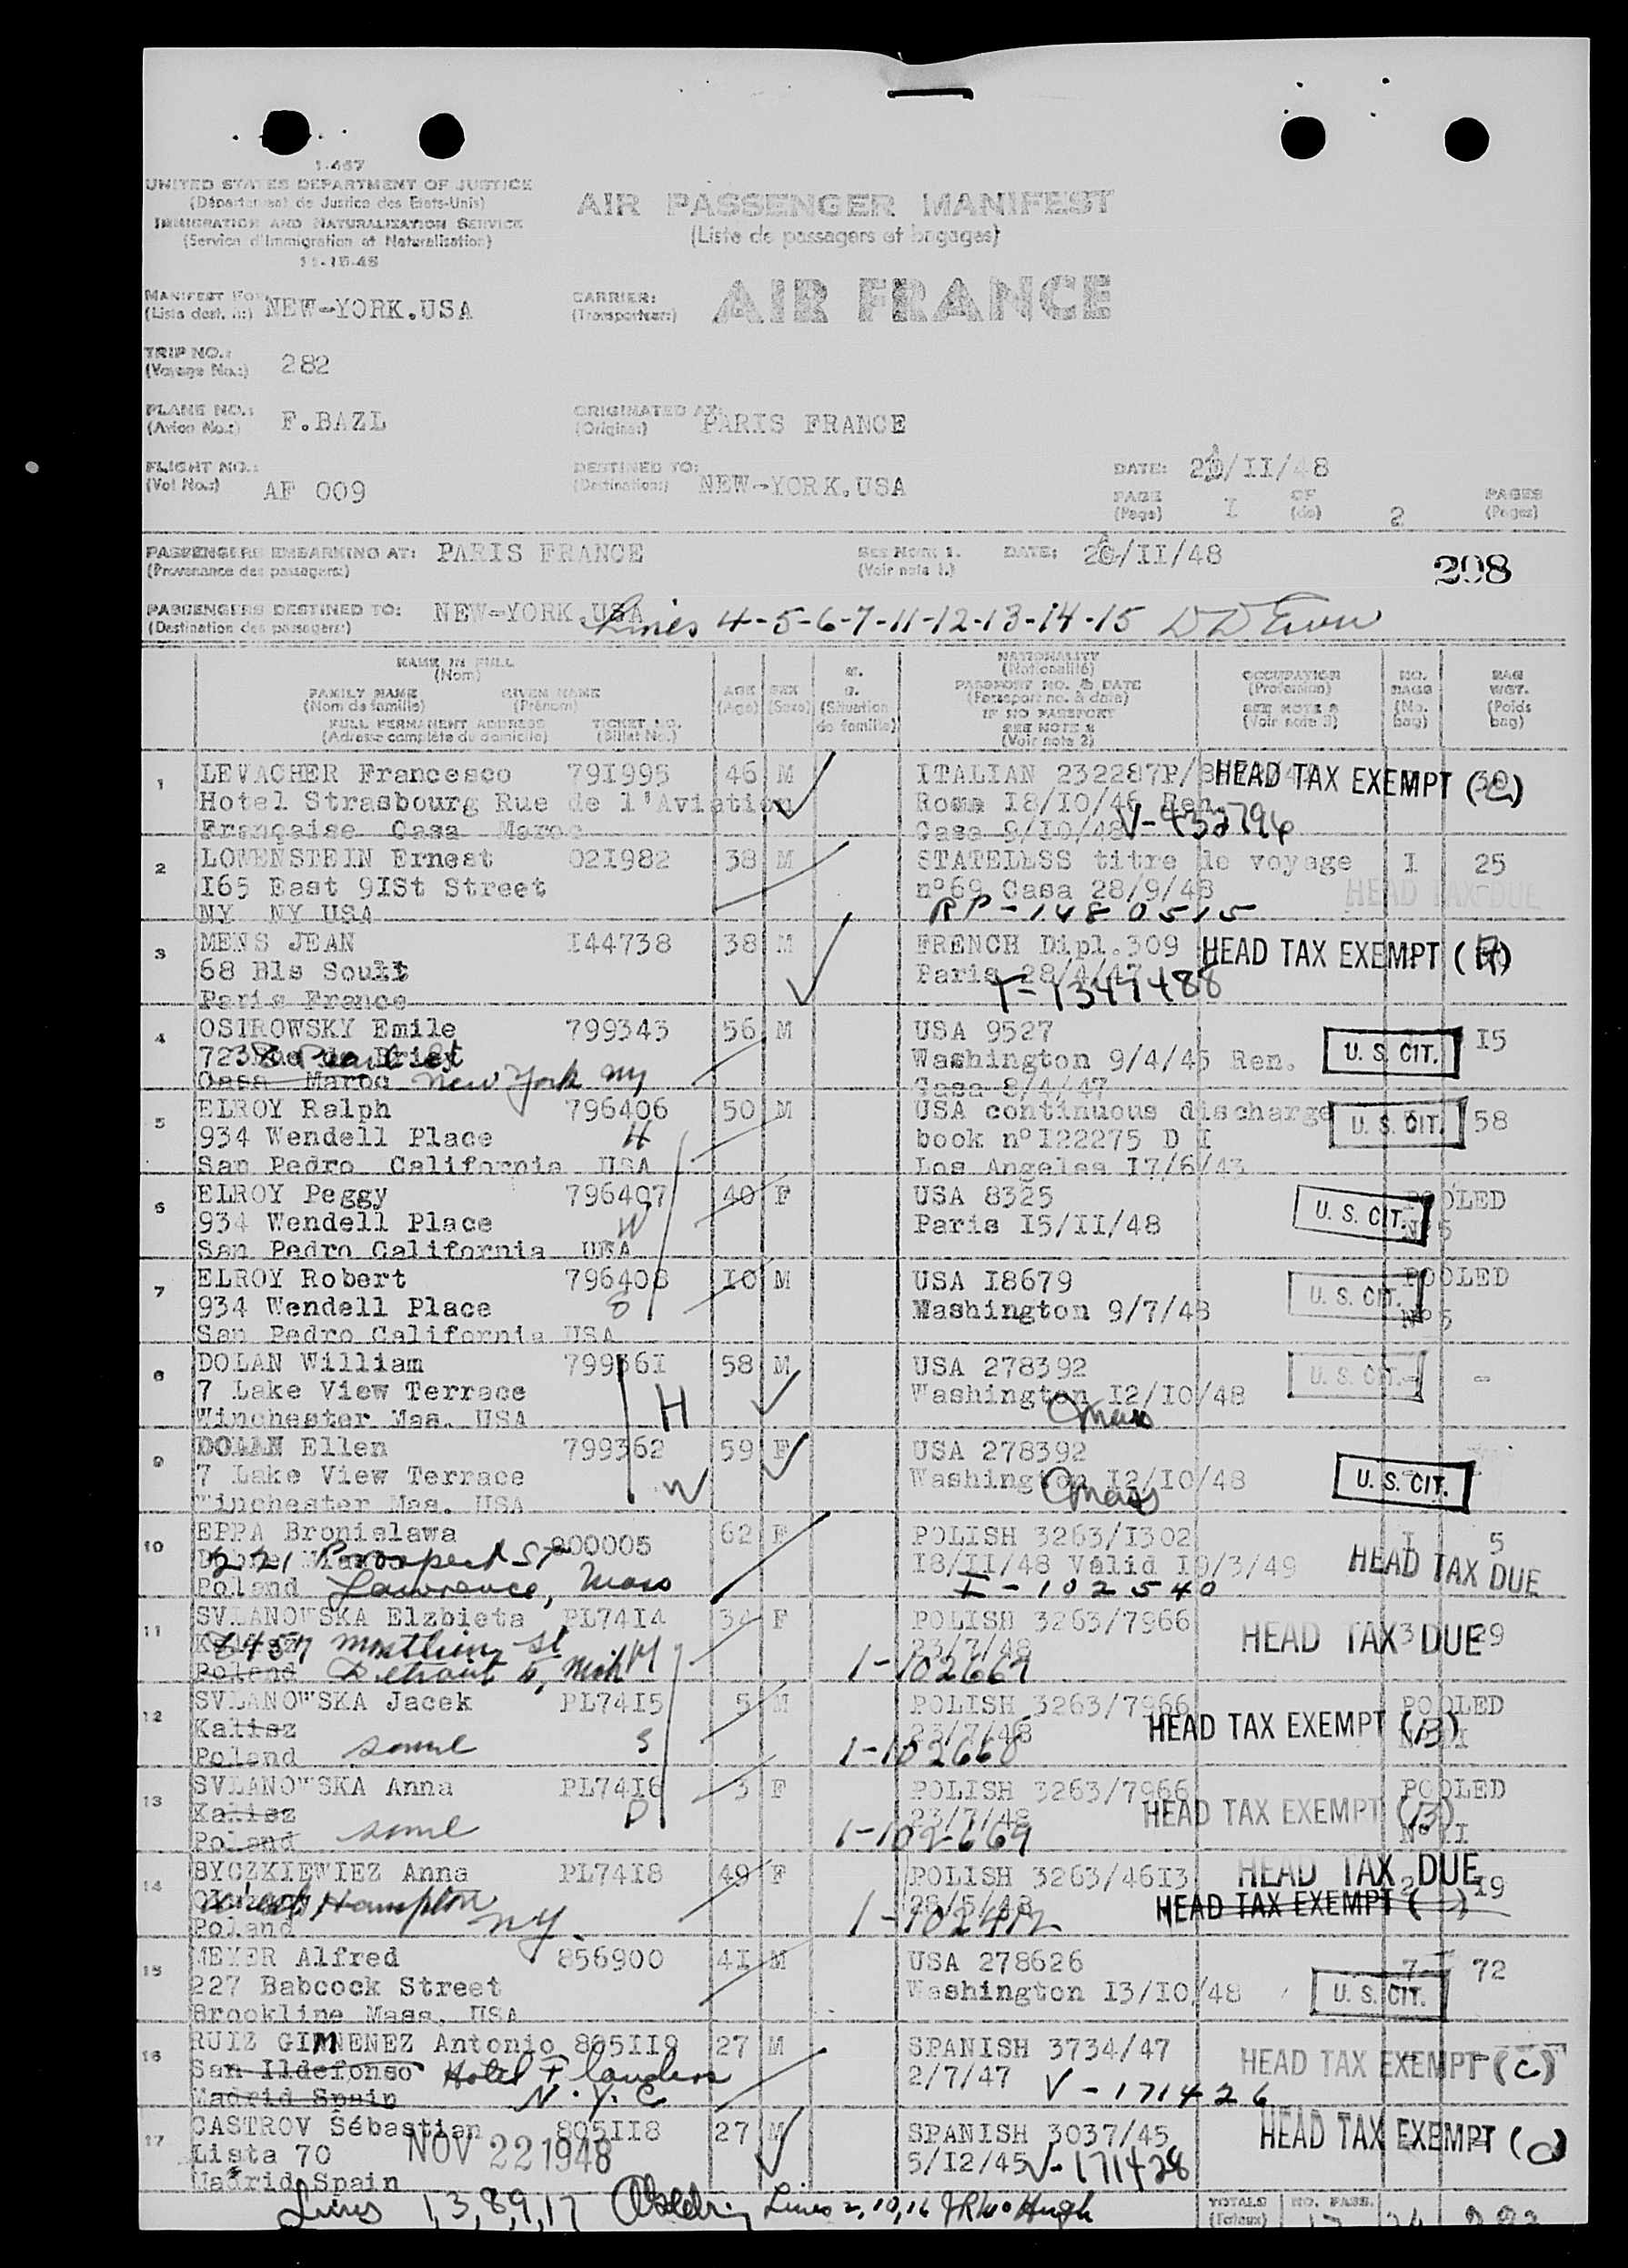 1-467
UNITED STATES DEPARTMENT OF JUSTICE
(Département de Justice des Etats-Unis)
IMMIGRATION AND NATURALIZATION SERVICE
(Service d'Immigration et Naturalisation)
11-15-45
AIR PASSENGER MANIFEST
(Liste de passagers et bagages)
MANIFEST FOR: NEW-YORK.USA
(Liste dest. à:)
CARRIER: AIR FRANCE
(Transporteur:)
TRIP NO.: 282
(Voyage No.:)
PLANE NO.: F.BAZL
(Avion No.:)
ORIGINATED AT: PARIS FRANCE
(Origine:)
FLIGHT NO.: AF 009
(Vol No.:)
DESTINED TO: NEW-YORK.USA
(Destination:)
DATE: /II/48
PAGE I OF 2 PAGES
(Page) (de) (Pages)
PASSENGERS EMBARKING AT: PARIS FRANCE
(Provenance des passagers:)
SEE NOTE 1. DATE: /II/48
(Voir note 1.)
208
PASSENGERS DESTINED TO: NEW-YORK.USA
(Destination des passagers:)
Lines 4-5-6-7-11-12-13-14-15
NAME IN FULL
(Nom)
FAMILY NAME GIVEN NAME
(Nom de famille) (Prénom)
FULL PERMANENT ADDRESS TICKET NO.
(Adresse complète du domicile) (Billet No.)
AGE SEX
(Age) (Sexe) (Situation de famille)
NATIONALITY
(Nationalité)
PASSPORT NO. & DATE
(Passeport no. & date)
IF NO PASSPORT
SEE NOTE 2
(Voir note 2)
OCCUPATION
(Profession)
SEE NOTE 3
(Voir note 3)
NO. BAGS
(No. bag)
BAG WGT.
(Poids bag)
1 LEVACHER Francesco 791995 46 M ITALIAN 232287P/ HEAD TAX EXEMPT (C)
Hotel Strasbourg Rue de l'Aviation Rome I8/IO/46 Ren.
Française Casa Maroc Casa 9/IO/48 V-432796
2 LOWENSTEIN Ernest 02I982 38 M STATELESS titre de voyage I 25
I65 East 9ISt Street n°69 Casa 28/9/48 HEAD TAX DUE
NY NY USA RP-1480515
3 MENS JEAN I44738 38 M FRENCH Dipl.309 HEAD TAX EXEMPT (H)
68 Bls Soult Paris 28/4/47
Paris France T-1347488
4 OSIROWSKY Emile 799343 56 M USA 9527 U. S. CIT. I5
Washington 9/4/45 Ren.
Casa Maroc New York NY Casa 8/4/47
5 ELROY Ralph 796406 50 M USA continuous discharge U. S. CIT. 58
934 Wendell Place H book n°I22275 D I
San Pedro California USA Los Angeles I7/6/43
6 ELROY Peggy 796407 40 F USA 8325 U. S. CIT. POOLED
934 Wendell Place W Paris I5/II/48 N°5
San Pedro California USA
7 ELROY Robert 796408 IO M USA I8679 U. S. CIT. POOLED
934 Wendell Place S Washington 9/7/48 N°5
San Pedro California USA
8 DOLAN William 799361 58 M USA 278392 U. S. CIT. -
7 Lake View Terrace H Washington I2/IO/48
Winchester Mas. USA Mass
9 DOLAN Ellen 799362 59 F USA 278392
7 Lake View Terrace W Washington I2/IO/48 U. S. CIT.
Winchester Mas. USA Mass
10 EPPA Bronislawa 800005 62 F POLISH 3263/I302 I 5
Prospect St I8/II/48 Valid I9/3/49 HEAD TAX DUE
Poland Lawrence, Mass I-102540
11 SVLANOWSKA Elzbieta PL74I4 34 F POLISH 3263/7966 HEAD TAX DUE 3 29
23/7/48
Poland Detroit Mich M 1-102667
12 SVLANOWSKA Jacek PL74I5 5 M POLISH 3263/7966 POOLED
Kalisz 23/7/48 HEAD TAX EXEMPT (B) N°II
Poland same S 1-102668
13 SVLANOWSKA Anna PL74I6 3 F POLISH 3263/7966 POOLED
Kalisz 23/7/48 HEAD TAX EXEMPT (B) N°II
Poland same D 1-102669
14 BYCZKIEWIEZ Anna PL74I8 49 F POLISH 3263/46I3 HEAD TAX DUE 2 I9
Hampton 28/5/48 HEAD TAX EXEMPT ( )
Poland NY
15 MEYER Alfred 856900 4I M USA 278626 7 72
227 Babcock Street Washington I3/IO/48 U. S. CIT.
Brookline Mass. USA
16 RUIZ GIMENEZ Antonio 805II9 27 M SPANISH 3734/47 HEAD TAX EXEMPT (C)
San Ildefonso Hotel Flanders 2/7/47 V-171426
Madrid Spain N.Y.C
17 CASTROV Sébastian 805II8 27 M SPANISH 3037/45 HEAD TAX EXEMPT (C)
Lista 70 NOV 22 1948 5/I2/45 V-171428
Madrid Spain
Lines 1,3,8,9,17 Lines 2,10,16
TOTALS NO. PASS.
(Totaux) 17